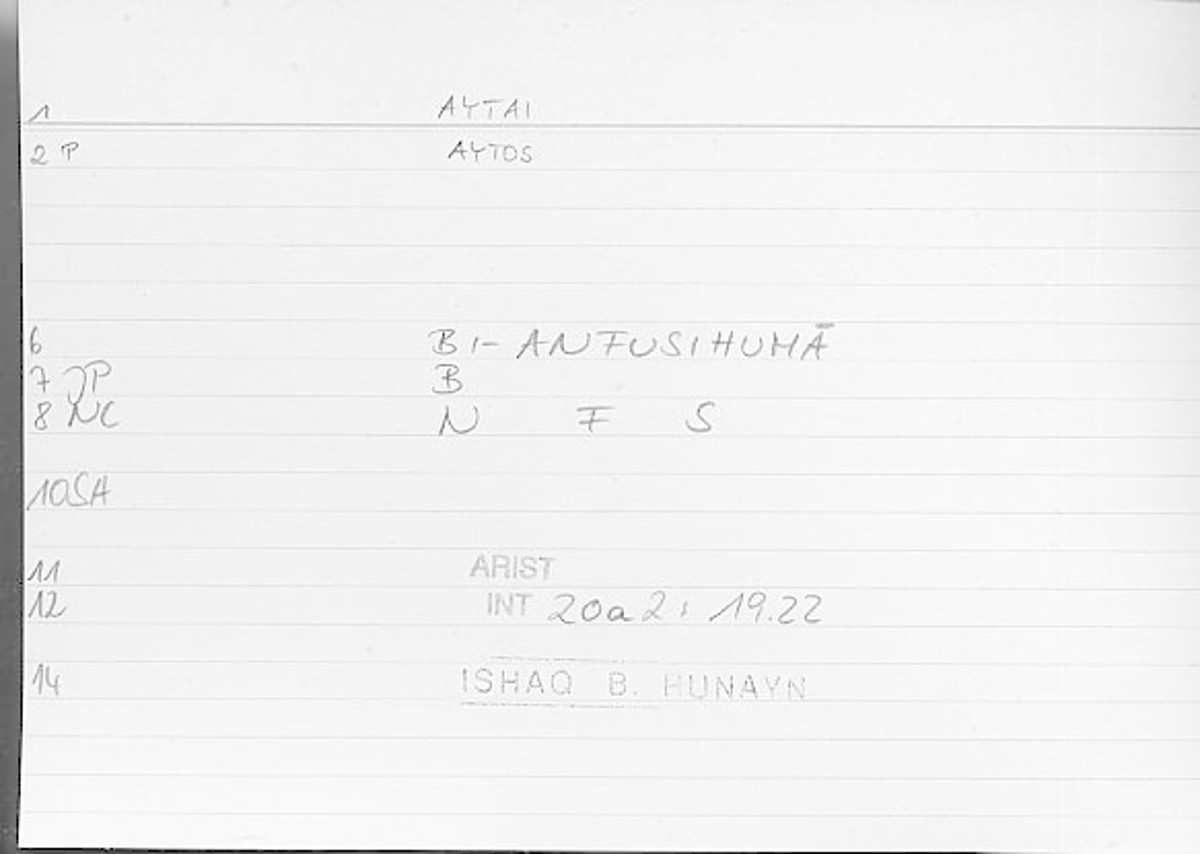 1 AYTAI
2 P AYTOS
6 BI-ANFUSIHUMĀ
7 JP B
8 NC N F S
10 SA
11 ARIST
12 INT 20a2: 19.22
14 ISHAQ B. HUNAYN